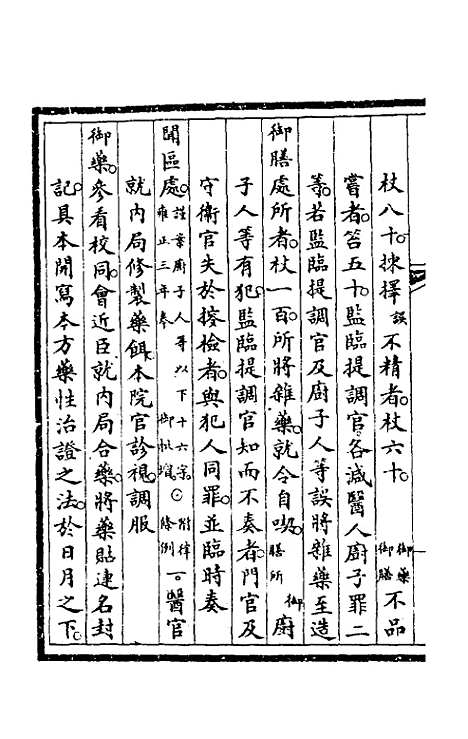 杖八十揀擇誤不精者杖六十御藥御膳不品
嘗者笞五十監臨提調官各減醫人廚子罪二
等若監臨提調官及廚子人等誤將雜藥至造
御膳處所者杖一百所將雜藥就令自喫御膳所廚
子人等有犯監臨提調官知而不奏者門官及
守衛官失於搜檢者與犯人同罪並臨時奏
聞區處謹案廚子人等以下十六字雍正三年奉御批增○附律條例一醫官
就內局修製藥餌本院官診視調服
御藥參看校同會近臣就內局合藥將藥貼連名封
記具本開寫本方藥性治證之法於日月之下